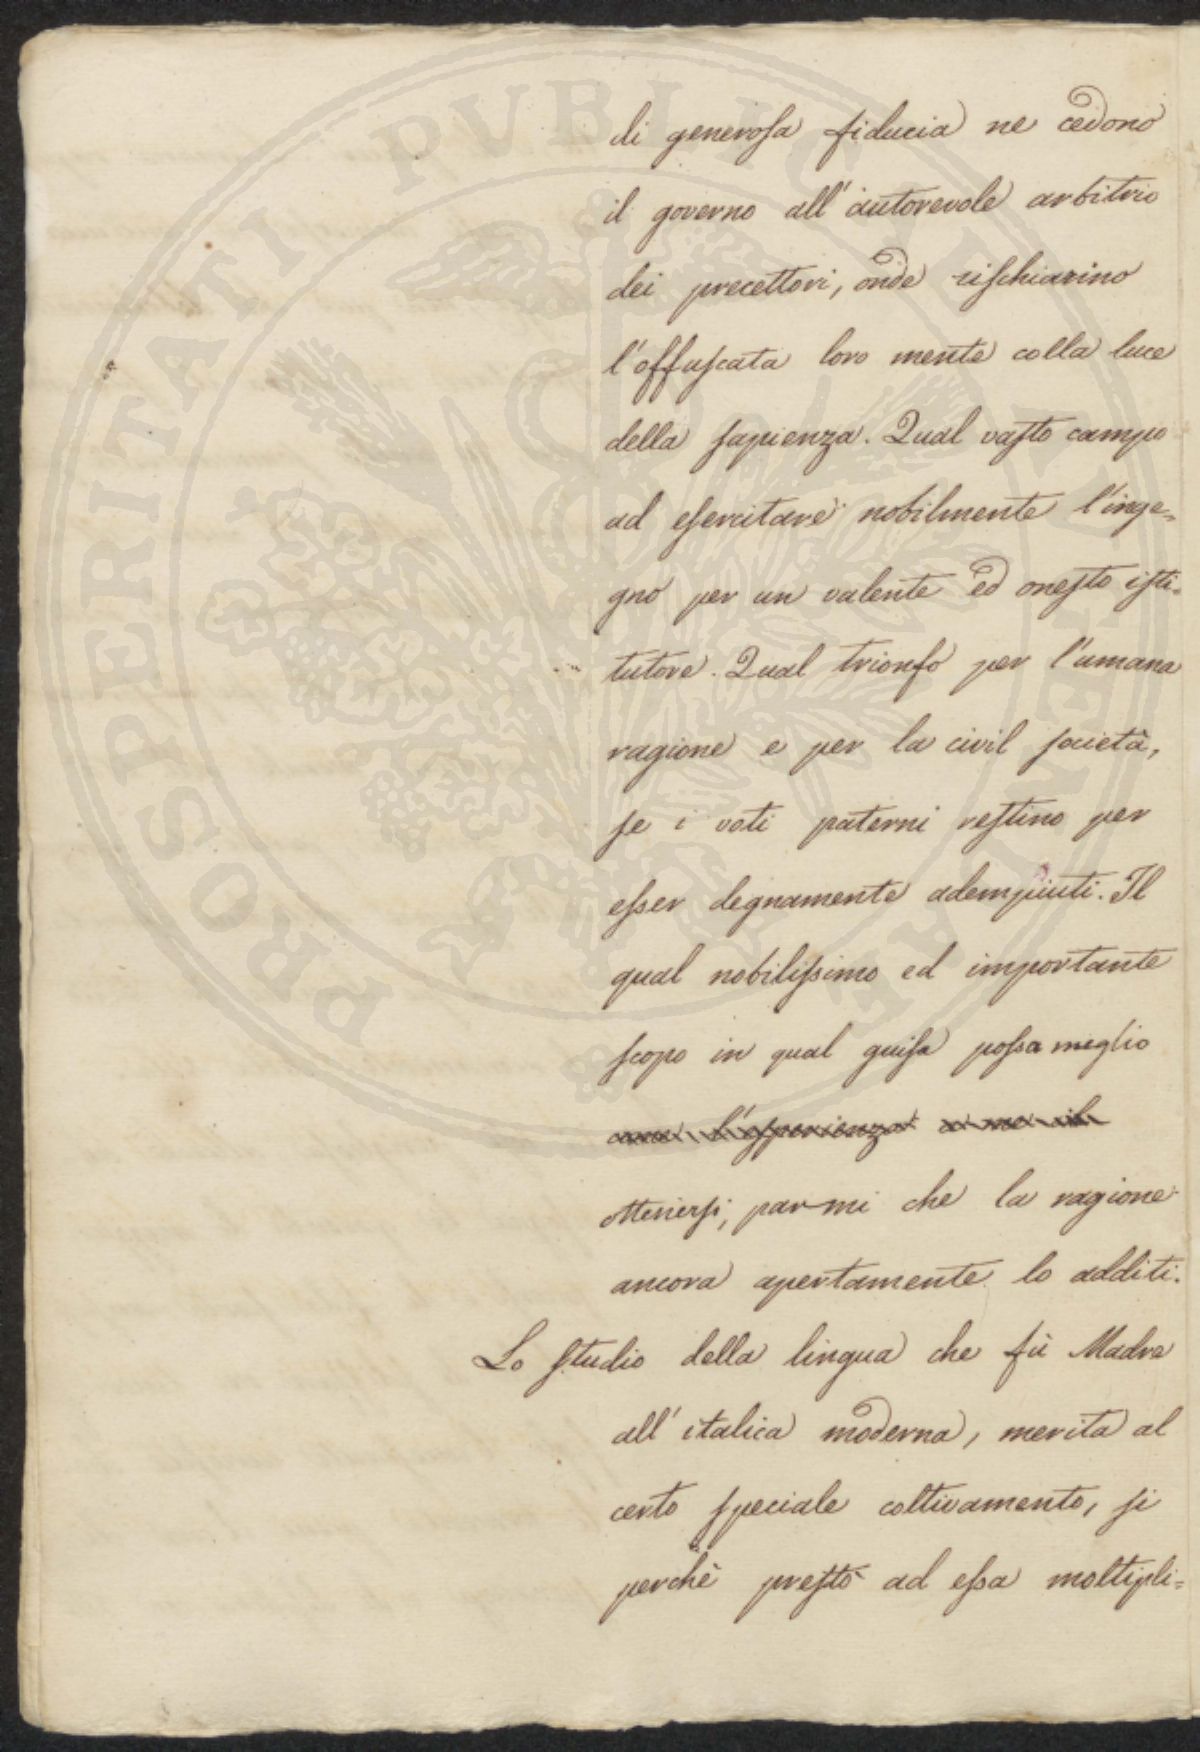 di generosa fiducia ne cedono
il governo all'autorevole arbitrio
dei precettori, onde rischiarino
l'offuscata loro mente colla luce
della sapienza. Qual vasto campo
ad esercitare nobilmente l'inge=
gno per un valente ed onesto isti=
tutore. Qual trionfo per l'umana
ragione e per la civil società,
se i voti paterni restino per
esser degnamente adempiuti. Il
qual nobilissimo ed importante
scopo in qual guisa possa meglio
l'esperienza
ottenersi, parmi che la ragione
ancora apertamente lo additi.
Lo studio della lingua che fù Madre
all'italica moderna, merita al
certo speciale coltivamento, si
perchè prestò ad essa moltipli=
PROSPERITATI PVBLICAE